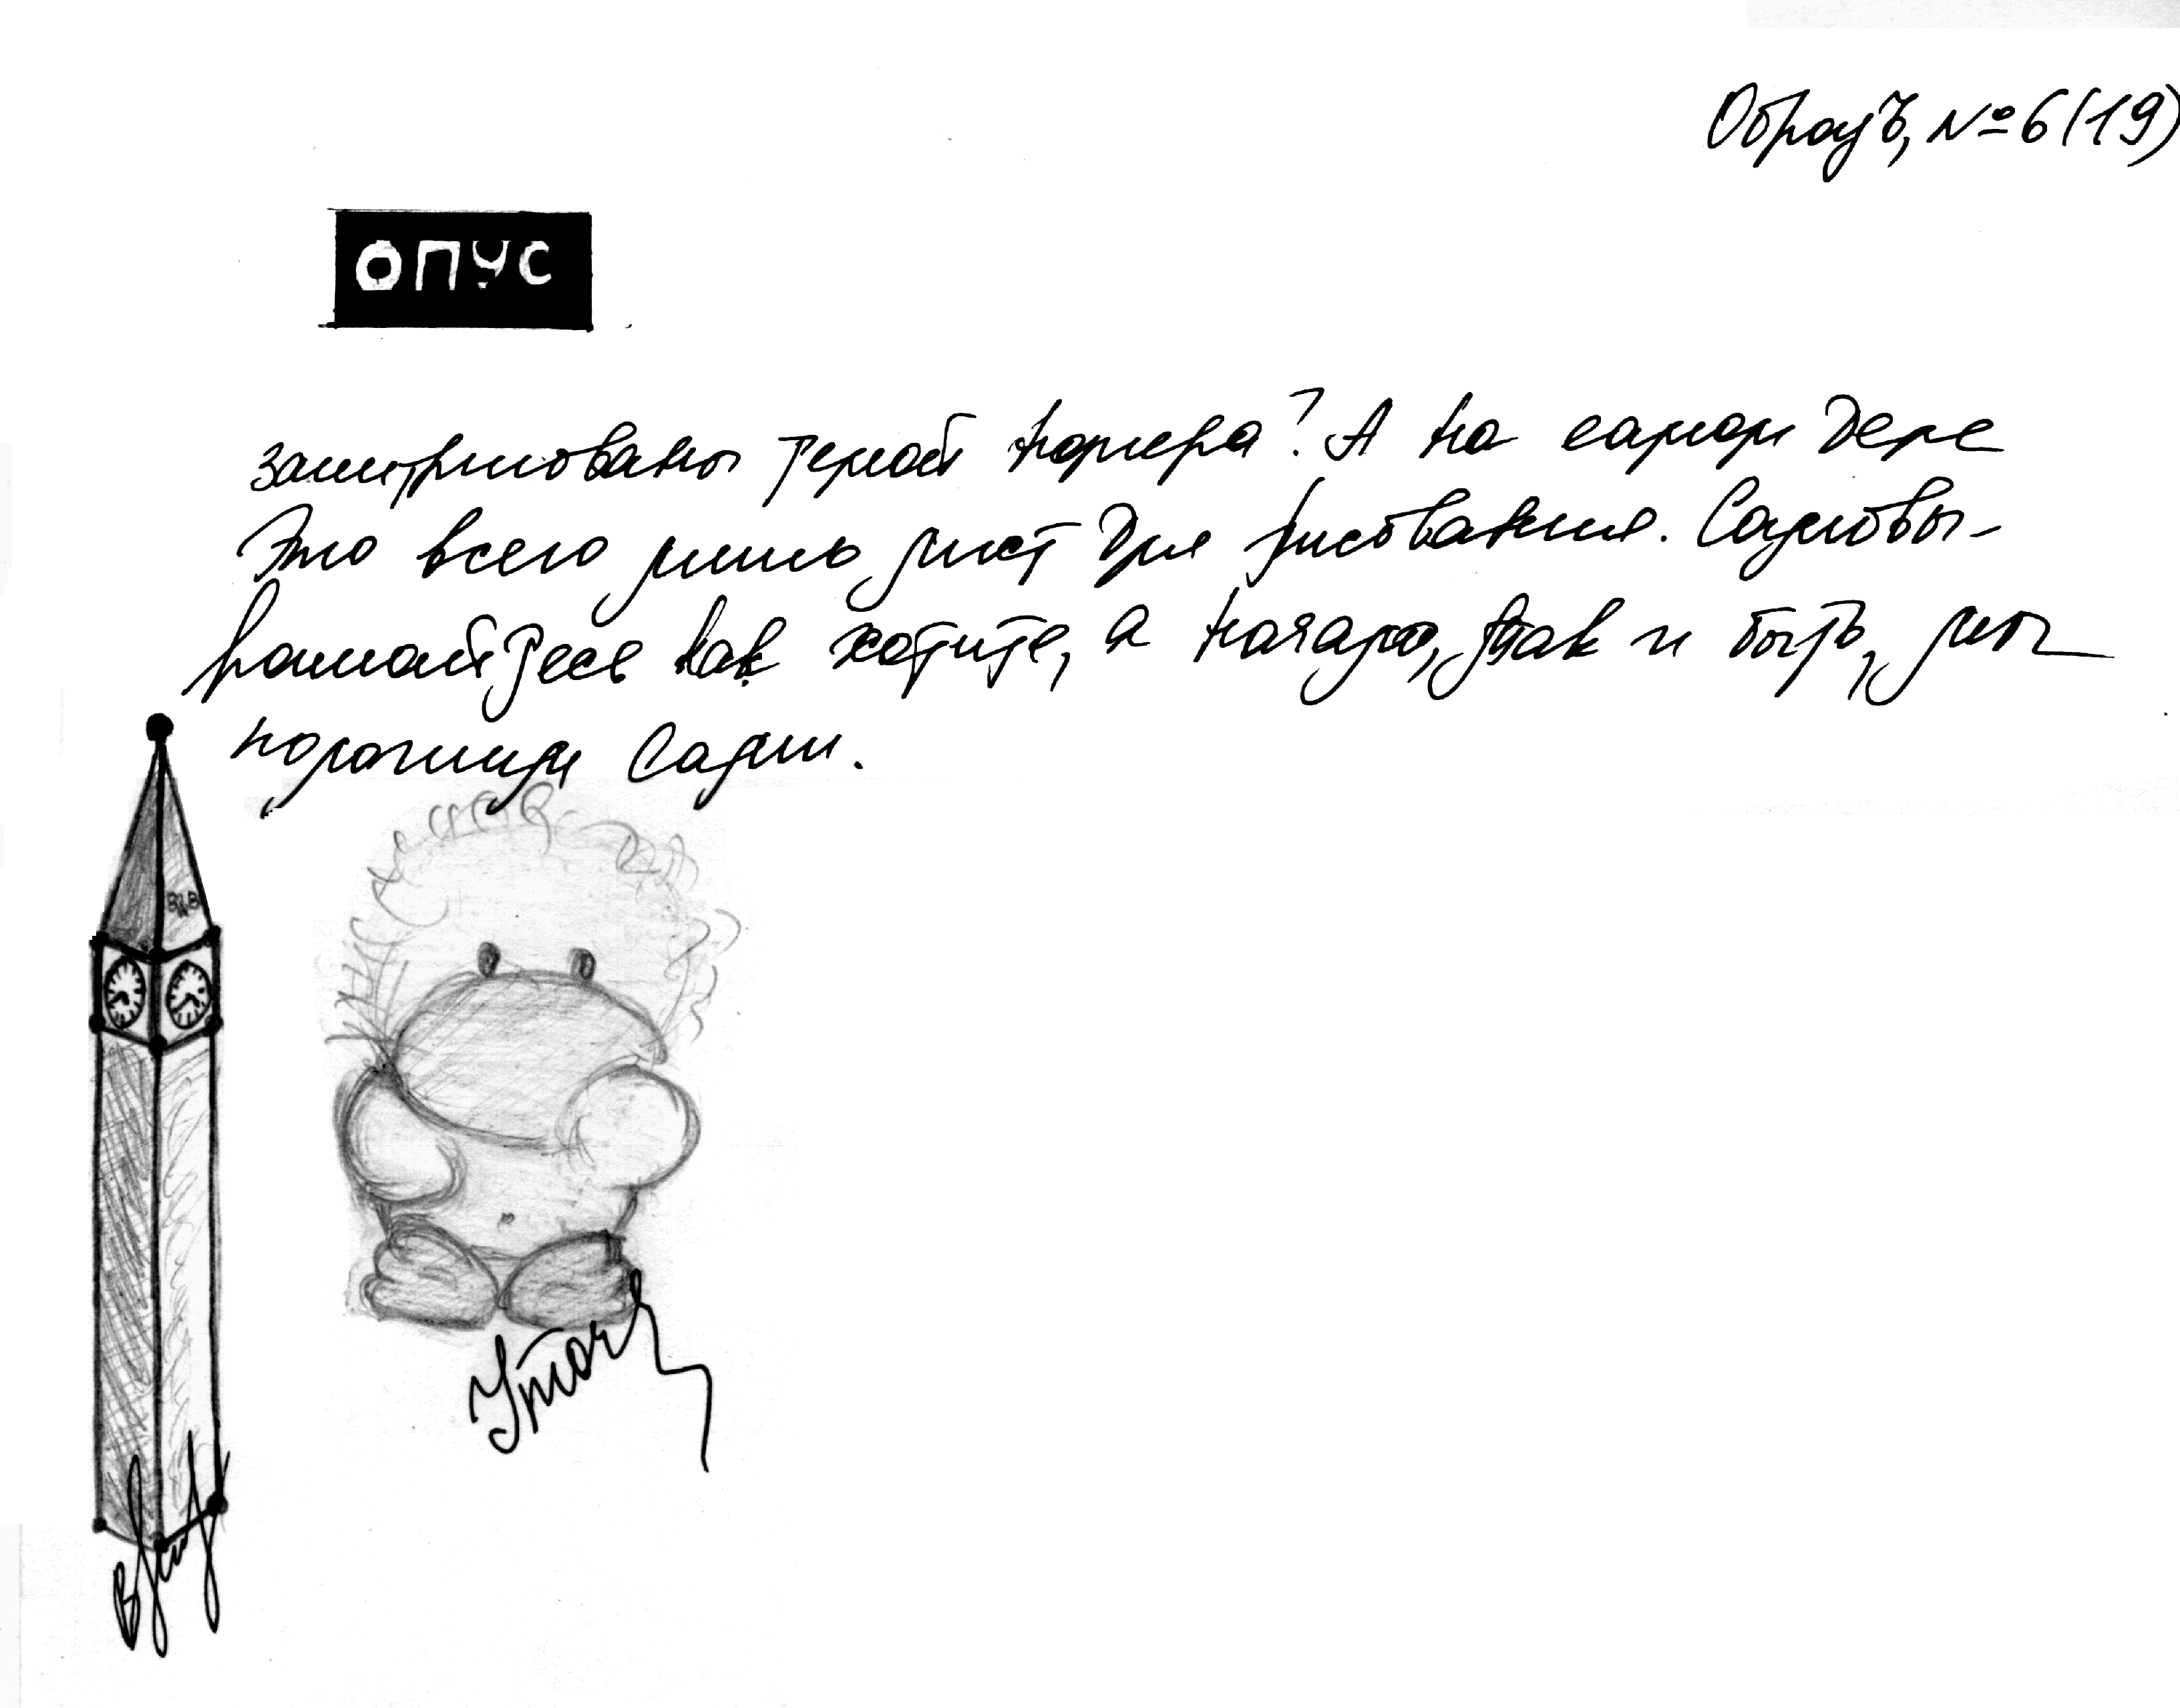 ОбразЪ, №6(19)
ОПУС
заинтригованы темой номера? А на самом деле
Это всего лишь лист для рисования. Самовы-
ражайтесь как хотите, а начало, так и быть, мы
положили Сами.
BWB